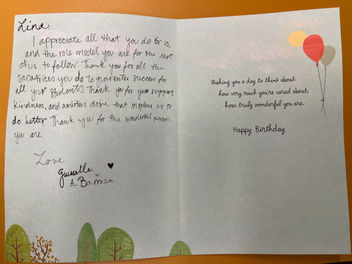 Linda,
I appreciate all that you do for us
and the role model you are for the rest
of us to follow. Thank you for all the
sacrifices you do to guarantee success for
all your students! Thank you for your support,
kindness, and ambitious drive that inspires us to
do better. Thank you for the wonderful person
you are.
Love
Guisselle
A Barraza
Wishing you a day to think about
how very much you're cared about,
how truly wonderful you are.
Happy Birthday